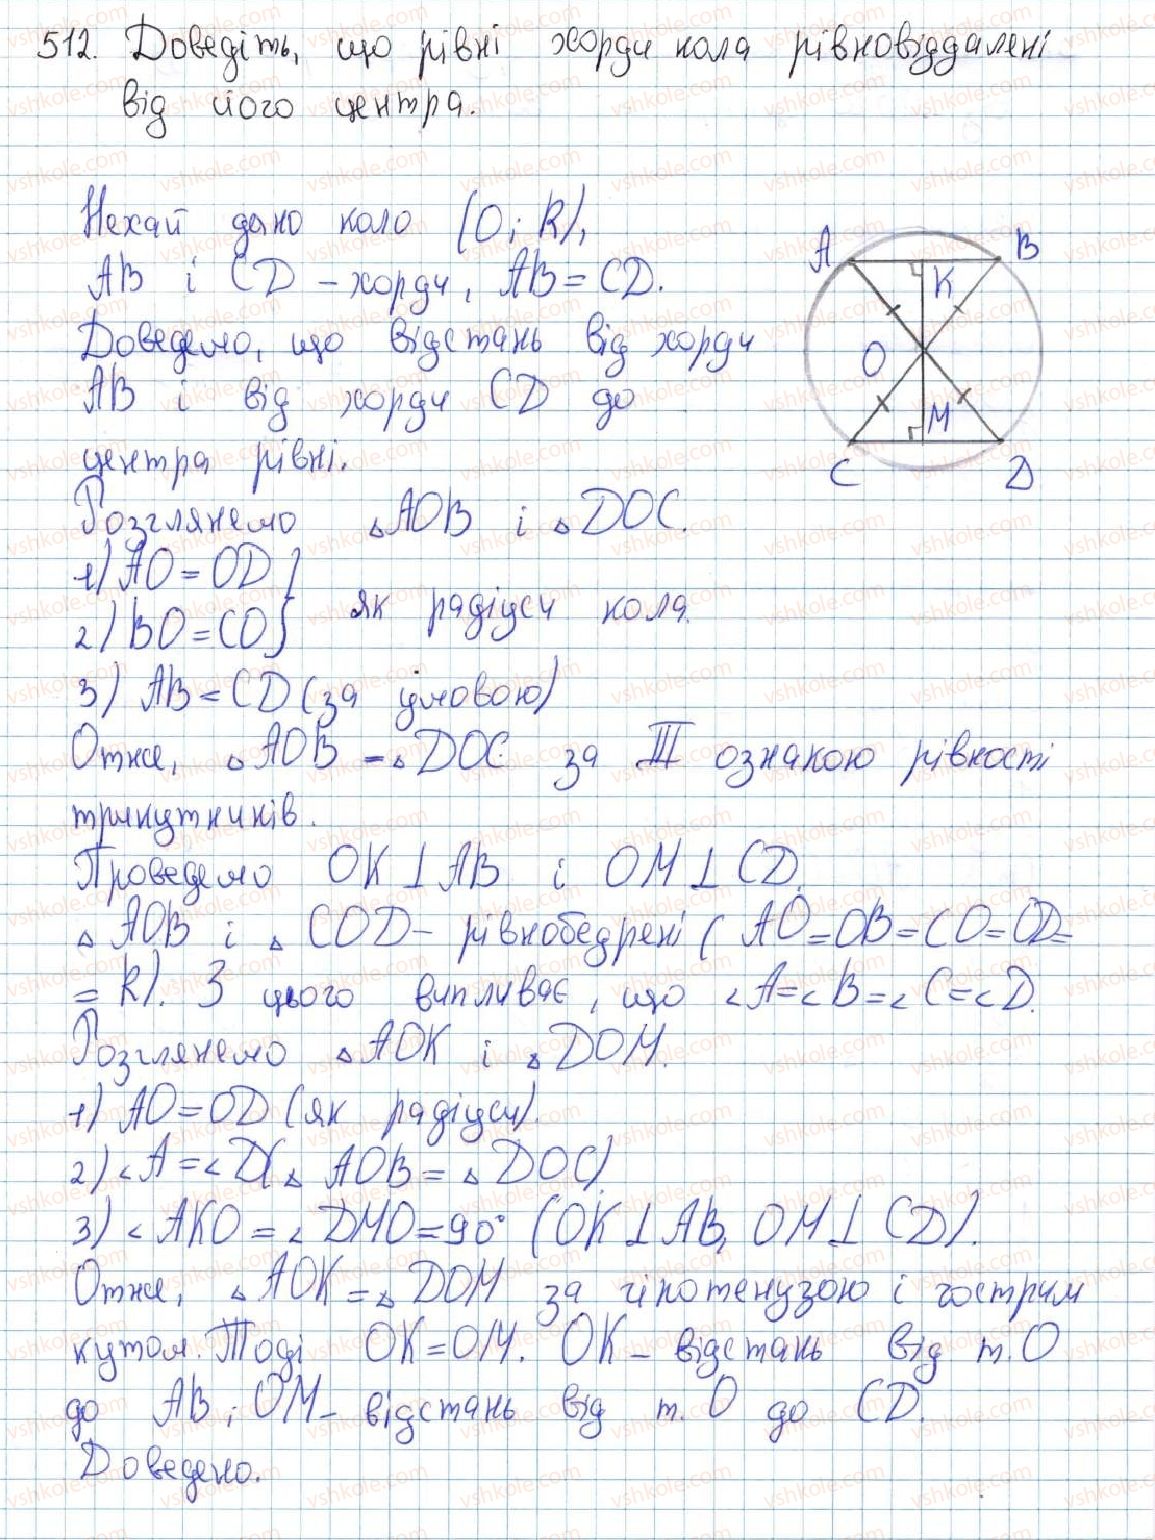 512. Доведіть, що рівні хорди кола рівновіддалені
від його центра.
Нехай дано коло (O; R),
AB і CD – хорди, AB = CD.
Доведемо, що відстань від хорди
AB і від хорди CD до
центра рівні.
A B K O M C D
Розглянемо △AOB і △DOC.
1) AO = OD }
2) BO = CO } як радіуси кола.
3) AB = CD (за умовою)
Отже, △AOB = △DOC за III ознакою рівності
трикутників.
Проведемо OK ⊥ AB і OM ⊥ CD.
△AOB і △COD – рівнобедрені (AO = OB = CO = OD =
= R). З цього випливає, що ∠A = ∠B = ∠C = ∠D.
Розглянемо △AOK і △DOM.
1) AO = OD (як радіуси).
2) ∠A = ∠D (△AOB = △DOC)
3) ∠AKO = ∠DMO = 90° (OK ⊥ AB, OM ⊥ CD).
Отже, △AOK = △DOM за гіпотенузою і гострим
кутом. Тоді OK = OM. OK – відстань від т. O
до AB, OM – відстань від т. O до CD.
Доведено.
vshkole.com